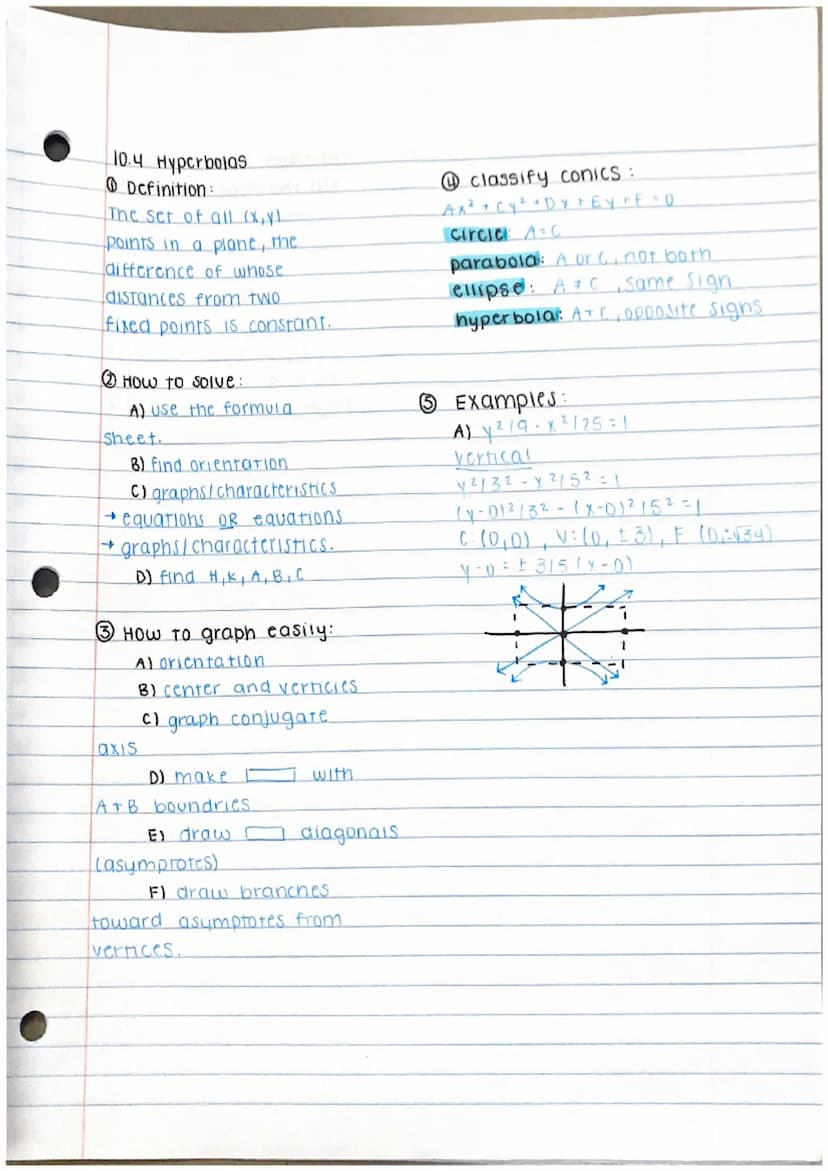 10.4 Hyperbolas
① Definition:
The set of all (x,y)
points in a plane, the
difference of whose
distances from two
fixed points is constant.
② How to solve:
A) use the formula
sheet.
B) find orientation
C) graphs/characteristics
→ equations OR equations
→ graphs/characteristics.
D) find H, K, A, B, C
③ How to graph easily:
A) orientation
B) center and verticies
C) graph conjugate
axis
D) make ▭ with
A + B boundries
E) draw ▭ diagonals
(asymptotes)
F) draw branches
toward asymptotes from
vertices.
④ classify conics:
Ax² + Cy² + Dx + Ey + F = 0
circle: A=C
parabola: A or C, not both
ellipse: A ≠ C, same sign
hyperbola: A + C, opposite signs
⑤ Examples:
A) y²/9 - x²/25 = 1
vertical
y²/3² - x²/5² = 1
(y-0)²/3² - (x-0)²/5² = 1
C: (0,0), V: (0, ±3), F (0, ±√34)
y-0 = ± 3/5 (x-0)